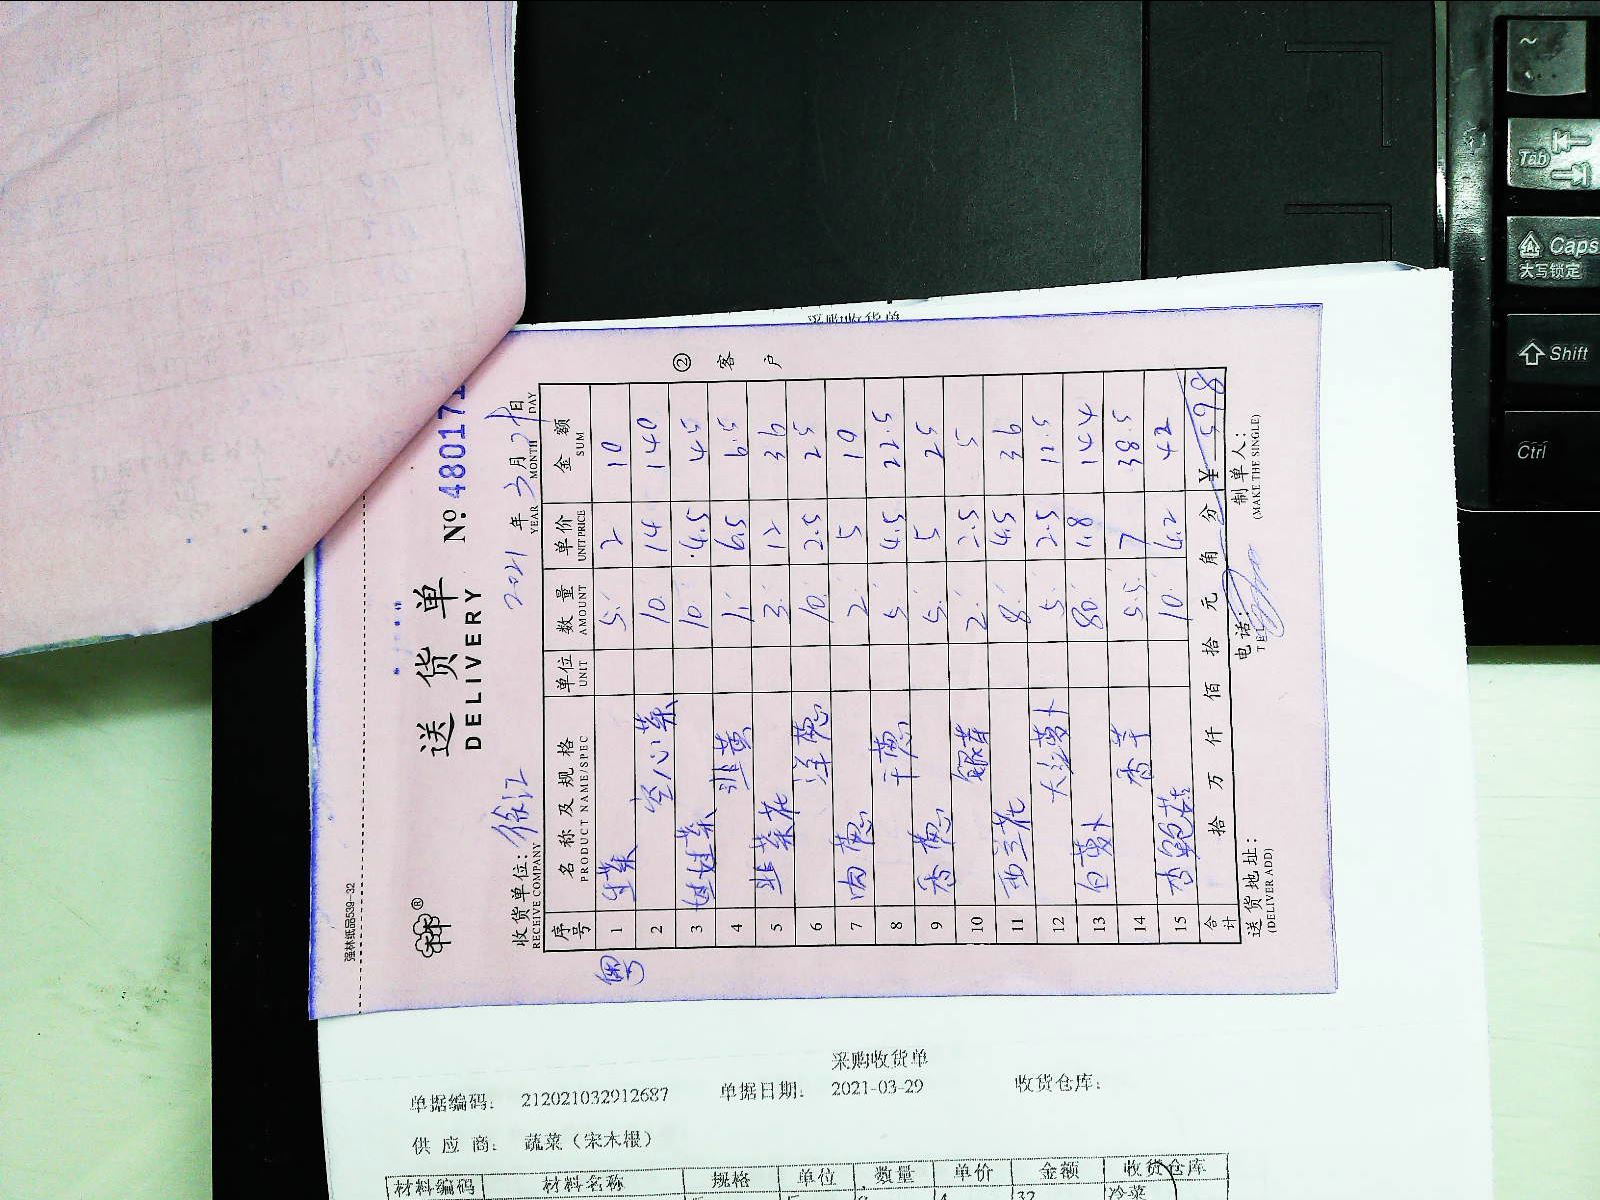 强林纸品539-32
送 货 单
DELIVERY
№ 480171
收货单位: 徐汇
RECEIVE COMPANY
2021 年 3 月 29 日
YEAR MONTH DAY
② 客 户
粤
序号 名称及规格 单位 数量 单价 金额
PRODUCT NAME/SPEC UNIT AMOUNT UNIT PRICE SUM
1 生菜 5 2 10
2 空心菜 10 14 140
3 娃娃菜 10 4.5 45
4 韭黄 1 9.5 9.5
5 韭菜花 3 12 36
6 洋葱 10 2.5 25
7 肉葱 2 5 10
8 干葱 5 4.5 22.5
9 香葱 5 5 25
10 银芽 2 2.5 5
11 西兰花 8 4.5 36
12 大红萝卜 5 2.5 12.5
13 白萝卜 80 1.8 144
14 香芋 5.5 7 38.5
15 杏鲍菇 10 4.2 42
合计 拾 万 仟 佰 拾 元 角 分 ¥ 598
送货地址:
(DELIVER ADD)
电话:
TEL
制单人:
(MAKE THE SINGLE)
采购收货单
采购收货单
单据编码: 212021032912687 单据日期: 2021-03-29 收货仓库:
供 应 商: 蔬菜(宋木根)
材料编码 材料名称 规格 单位 数量 单价 金额 收货仓库
4 32 冷菜
~
Tab
Caps
大写锁定
Shift
Ctrl